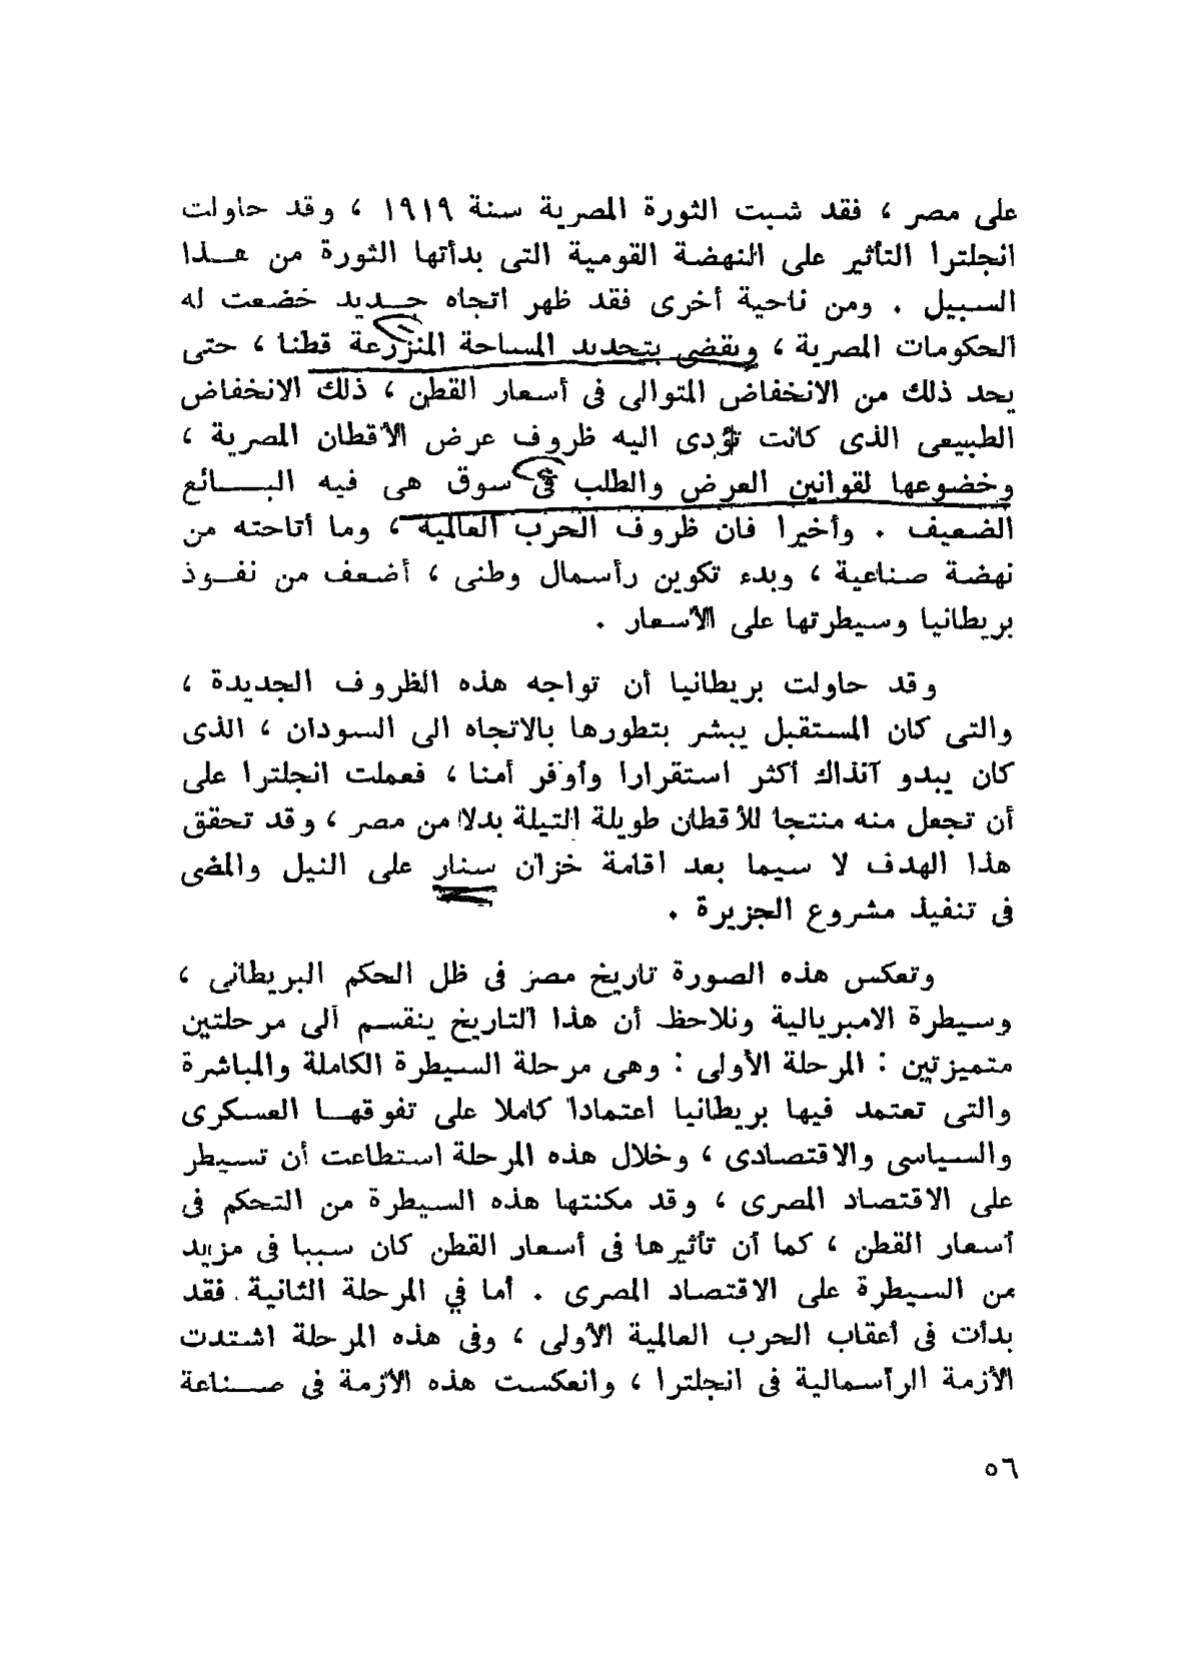 على مصر ، فقد شبت الثورة المصرية سنة ١٩١٩ ، وقد حاولت
انجلترا التأثير على النهضة القومية التى بدأتها الثورة من هــذا
السبيل . ومن ناحية أخرى فقد ظهر اتجاه جــديد خضعت له
الحكومات المصرية ، ويقضى بتحديد المساحة المنزرعة قطنا ، حتى
يحد ذلك من الانخفاض المتوالى فى أسعار القطن ، ذلك الانخفاض
الطبيعى الذى كانت تؤدى اليه ظروف عرض الأقطان المصرية ،
وخضوعها لقوانين العرض والطلب فى سوق هى فيه البــــائع
الضعيف . وأخيرا فان ظروف الحرب العالمية ، وما أتاحته من
نهضة صناعية ، وبدء تكوين رأسمال وطنى ، أضعف من نفــوذ
بريطانيا وسيطرتها على الأسعار .
وقد حاولت بريطانيا أن تواجه هذه الظروف الجديدة ،
والتى كان المستقبل يبشر بتطورها بالاتجاه الى السودان ، الذى
كان يبدو آنذاك أكثر استقرارا وأوفر أمنا ، فعملت انجلترا على
أن تجعل منه منتجا للأقطان طويلة التيلة بدلا من مصر ، وقد تحقق
هذا الهدف لا سيما بعد اقامة خزان سنار على النيل والمضى
فى تنفيذ مشروع الجزيرة .
وتعكس هذه الصورة تاريخ مصر فى ظل الحكم البريطانى ،
وسيطرة الامبريالية ونلاحظ أن هذا التاريخ ينقسم الى مرحلتين
متميزتين : المرحلة الأولى : وهى مرحلة السيطرة الكاملة والمباشرة
والتى تعتمد فيها بريطانيا اعتمادا كاملا على تفوقهــا العسكرى
والسياسى والاقتصادى ، وخلال هذه المرحلة استطاعت أن تسيطر
على الاقتصاد المصرى ، وقد مكنتها هذه السيطرة من التحكم فى
أسعار القطن ، كما أن تأثيرها فى أسعار القطن كان سببا فى مزيد
من السيطرة على الاقتصاد المصرى . أما في المرحلة الثانية فقد
بدأت فى أعقاب الحرب العالمية الأولى ، وفى هذه المرحلة اشتدت
الأزمة الرأسمالية فى انجلترا ، وانعكست هذه الأزمة فى صــناعة
٥٦